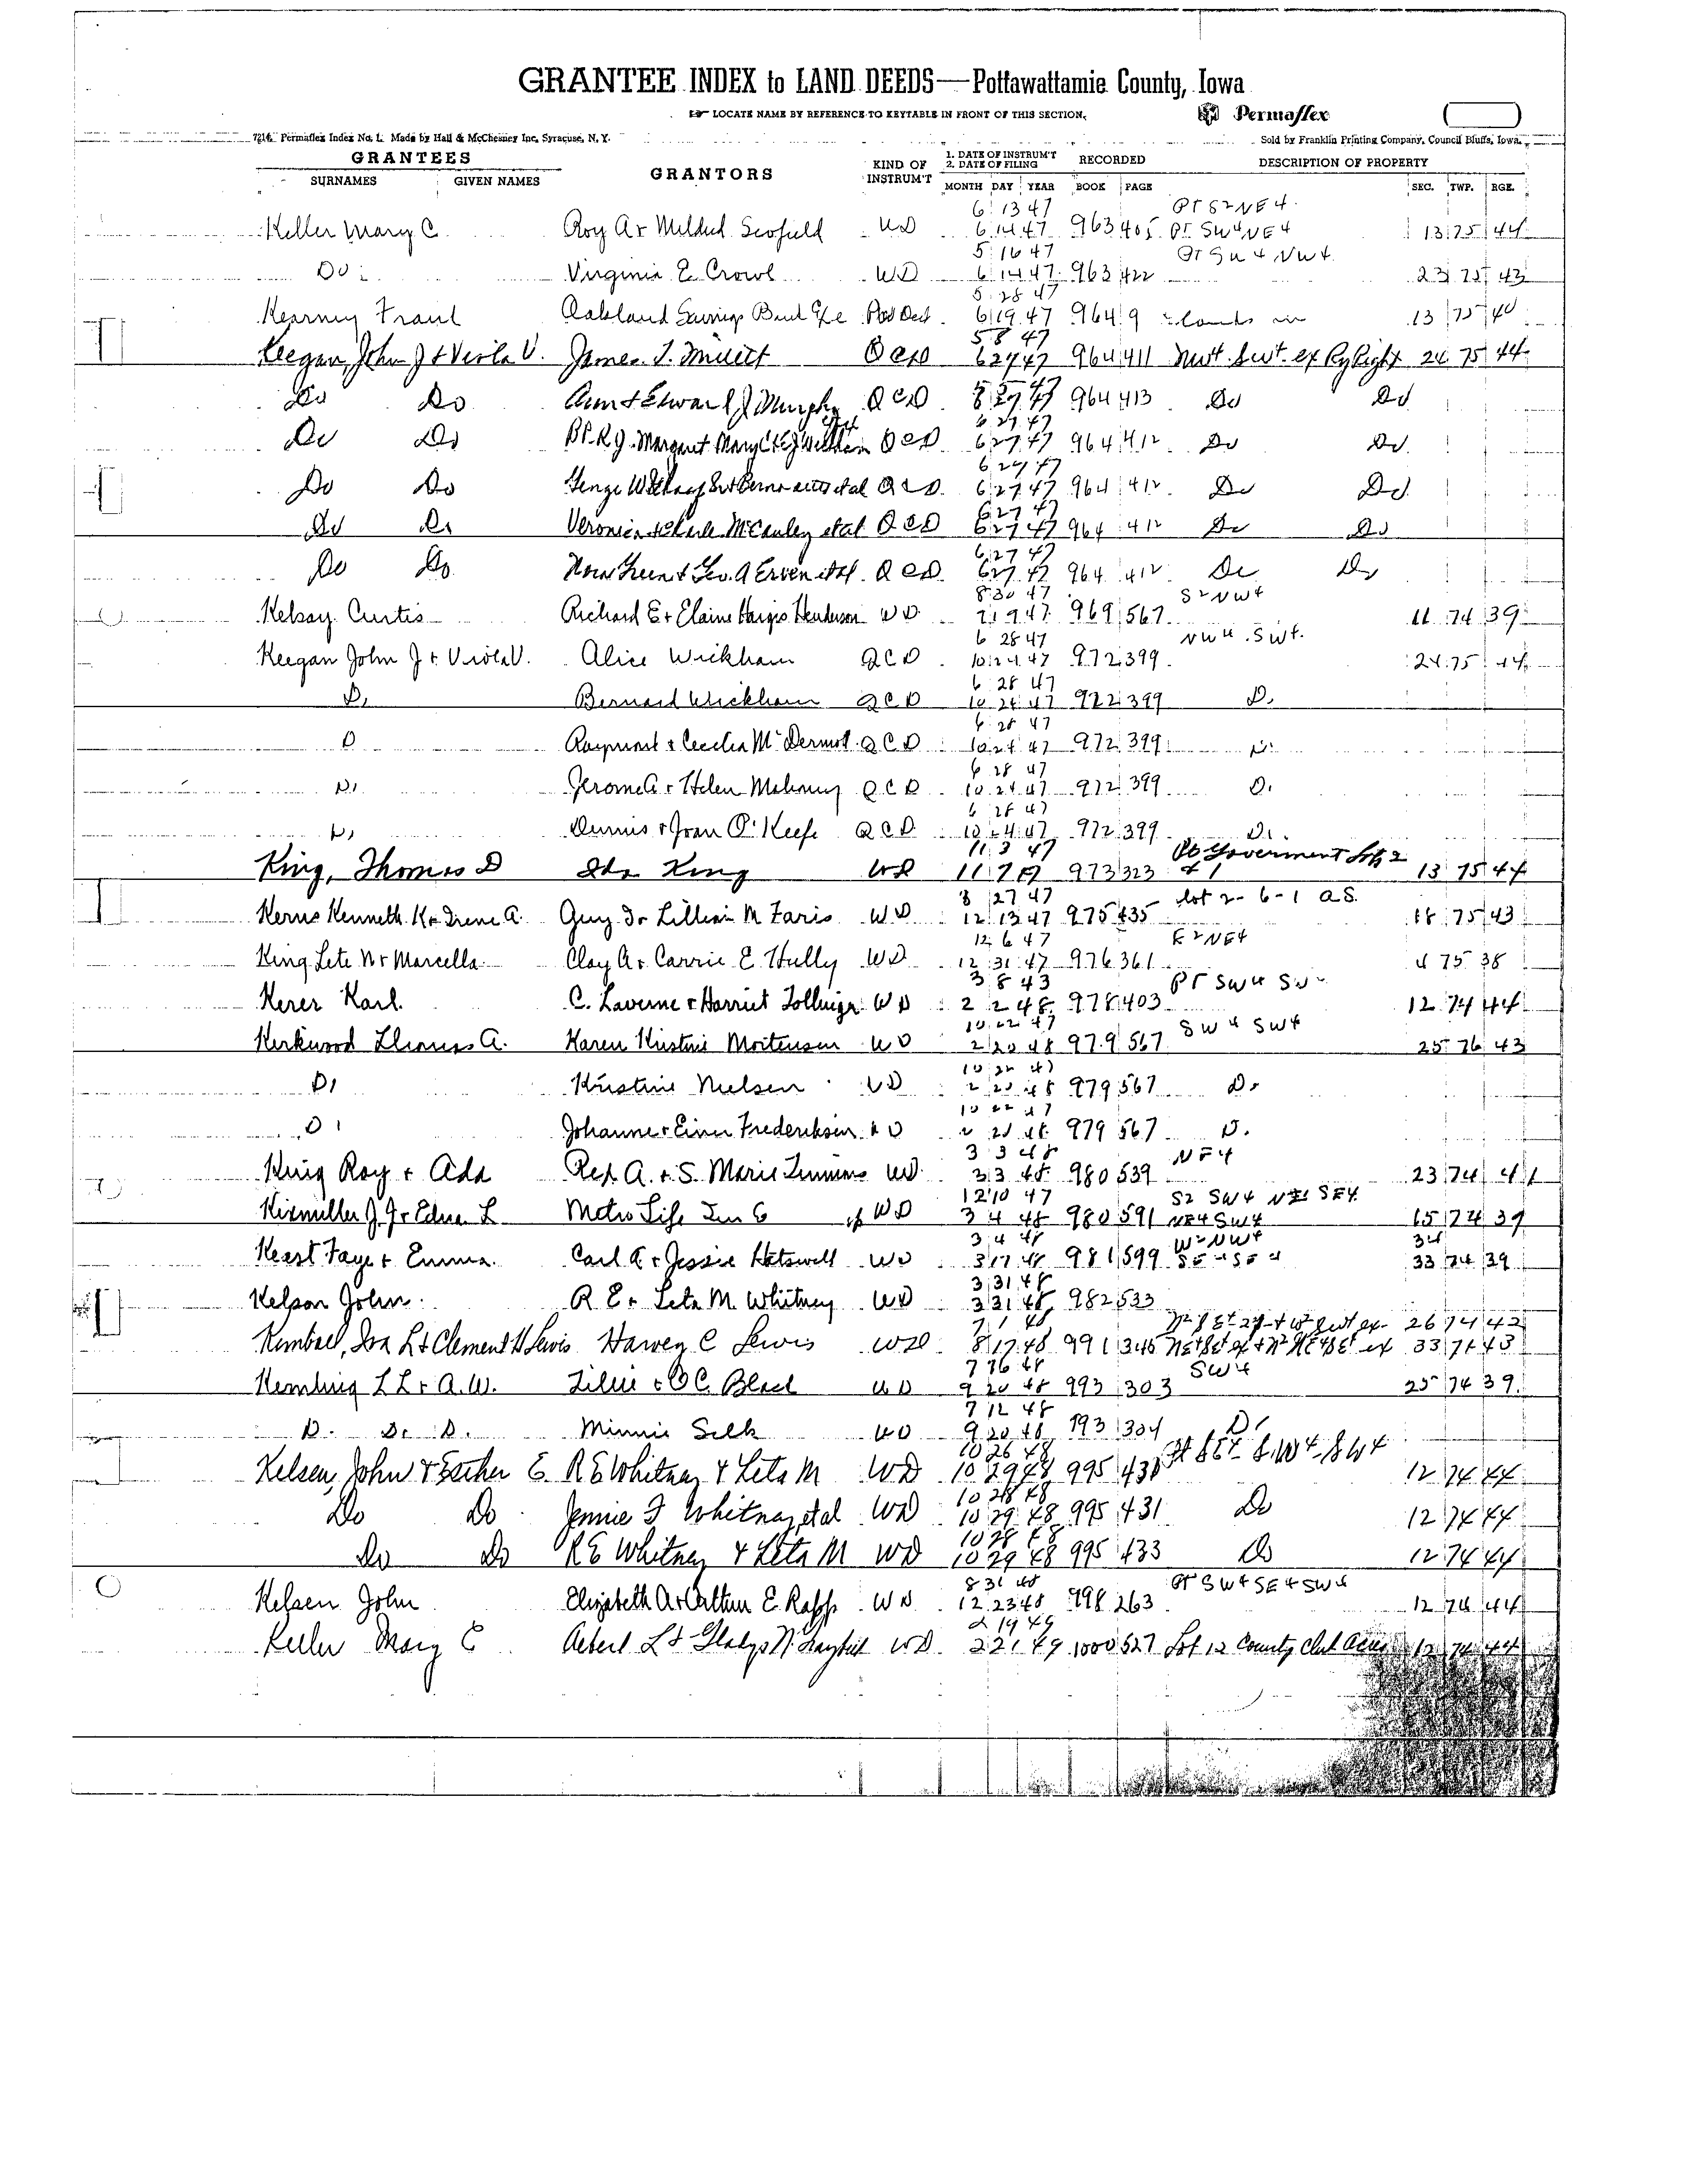 GRANTEE INDEX to LAND DEEDS—Pottawattamie County, Iowa
LOCATE NAME BY REFERENCE TO KEYTABLE IN FRONT OF THIS SECTION.
Permaflex
7214 Permaflex Index No. 1. Made by Hall & McChesney Inc, Syracuse, N. Y.
Sold by Franklin Printing Company, Council Bluffs, Iowa.
GRANTEES GRANTORS KIND OF INSTRUM'T 1. DATE OF INSTRUM'T 2. DATE OF FILING RECORDED DESCRIPTION OF PROPERTY
SURNAMES GIVEN NAMES MONTH DAY YEAR BOOK PAGE SEC. TWP. RGE.
6 13 47 PT S2NE4
Keller Mary C Roy A + Mildred Scofield WD 6 14 47 963 405 PT SW4NE4 13 75 44
5 16 47 PT SW4 NW4
Do Virginia E. Crowl WD 6 14 47 963 422 23 75 43
5 28 47
Kearney Frank Oakland Savings Bank 6 19 47 964 9 lands in 13 75 40
5 8 47
Keegan, John J & Viola V. James T. QCD 6 27 47 964 411 NW4 SW4 ex Ry Right 24 75 44
Do Do Ann & Edward J Murphy QCD 27 47 964 413 Do Do
6 27 47
Do Do Margaret Mary QCD 6 27 47 964 412 Do Do
6 27 47
Do Do QCD 6 27 47 964 412 Do Do
6 27 47
Do Do Veronica & McCauley etal QCD 6 27 47 964 412 Do Do
6 27 47
Do Do Nora Green & Geo. A Erven etal QCD 6 27 47 964 412 Do Do
8 30 47 S2NW4
Kelsay Curtis Richard E + Elaine Hargis Henderson WD 969 567 11 74 39
6 28 47 NW4 SW4
Keegan John J + Viola V. Alice Wickham QCD 10 24 47 972 399 24 75 44
6 28 47
D. Bernard Wickham QCD 10 24 47 972 399 D.
6 28 47
D Raymond + Cecelia McDermot QCD 10 24 47 972 399 D.
6 28 47
D. Jerome A + Helen Mahoney QCD 10 24 47 972 399 D.
6 28 47
D. Dennis + Joan O'Keefe QCD 10 24 47 972 399 D.
11 3 47 Goverment Lots 2
King, Thomas D Ida King WD 11 7 47 973 323 & 1 13 75 44
8 27 47 lot 2-6-1 A.S.
Kerns Kenneth K + Irene A. Guy + Lillian M Faris WD 12 13 47 975 435 18 75 43
12 6 47 E2NE4
King Lete N + Marcella Clay A + Carrie E Hully WD 12 31 47 976 361 4 75 38
3 8 43 PT SW4 SW
Kerer Karl C. Laverne + Harriet WD 2 2 48 978 403 12 74 44
10 22 47 SW4 SW4
Kirkwood Thomas A. Karen Kristine Mortensen WD 2 20 48 979 567 25 76 43
10 22 47
D. Kristine Nielsen WD 2 20 48 979 567 D.
10 22 47
D. Johanne + Einer Frederiksen WD 2 20 48 979 567 D.
3 3 48 NE4
King Roy + Ada Rex A. + S. Marie Timmins WD 3 3 48 980 539 23 74 41
12 10 47 S2 SW4 SE4
Kixmiller J. J + Edna L Metro Life Ins Co WD 3 4 48 980 591 NE4SW4 15 74 39
3 4 48 W2NW4 34
Keast Faye + Emma Carl A + Jessie Hatswell WD 3 17 48 981 599 SE4SE4 33 74 39
3 31 48
Kelson John R E + Leta M Whitney WD 3 31 48 982 533
7 1 48 26 74 42
Kimball, Iva L + Clement H Lewis Harvey C Lewis WD 8 17 48 991 345 33 74 43
7 26 48 SW4
L L + A. W. WD 9 20 48 993 303 25 74 39
7 12 48
D. D. D. Minnie Selk WD 9 20 48 993 304 D.
10 26 48 Pt SE4 SW4 SW4
Kelsen, John & Esther E. R E Whitney & Leta M WD 10 29 48 995 430 12 74 44
10 28 48
Do Do Jennie F Whitney etal WD 10 29 48 995 431 Do 12 74 44
10 28 48
Do Do R E Whitney & Leta M WD 10 29 48 995 433 Do 12 74 44
8 31 48 PT SW4 SE4 SW4
Kelsen John Elizabeth A + Arthur E. Rapp WD 12 23 48 998 263 12 74 44
2 19 49
Keller Mary C Albert L & Gladys N WD 2 21 49 1000 527 Lot 12 County Club Acres 12 74 44